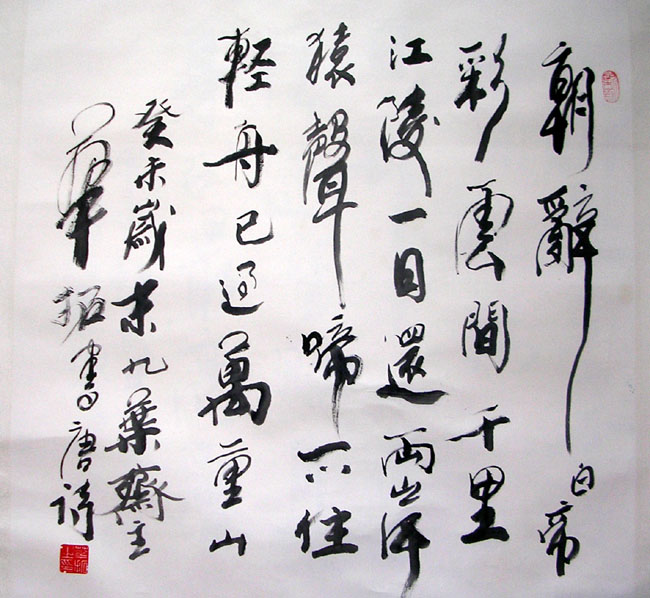 朝辭白帝
彩雲間千里
江陵一日還兩岸
猿聲啼不住
輕舟已過萬重山
癸未歲末九葉齋主
華拓書唐詩